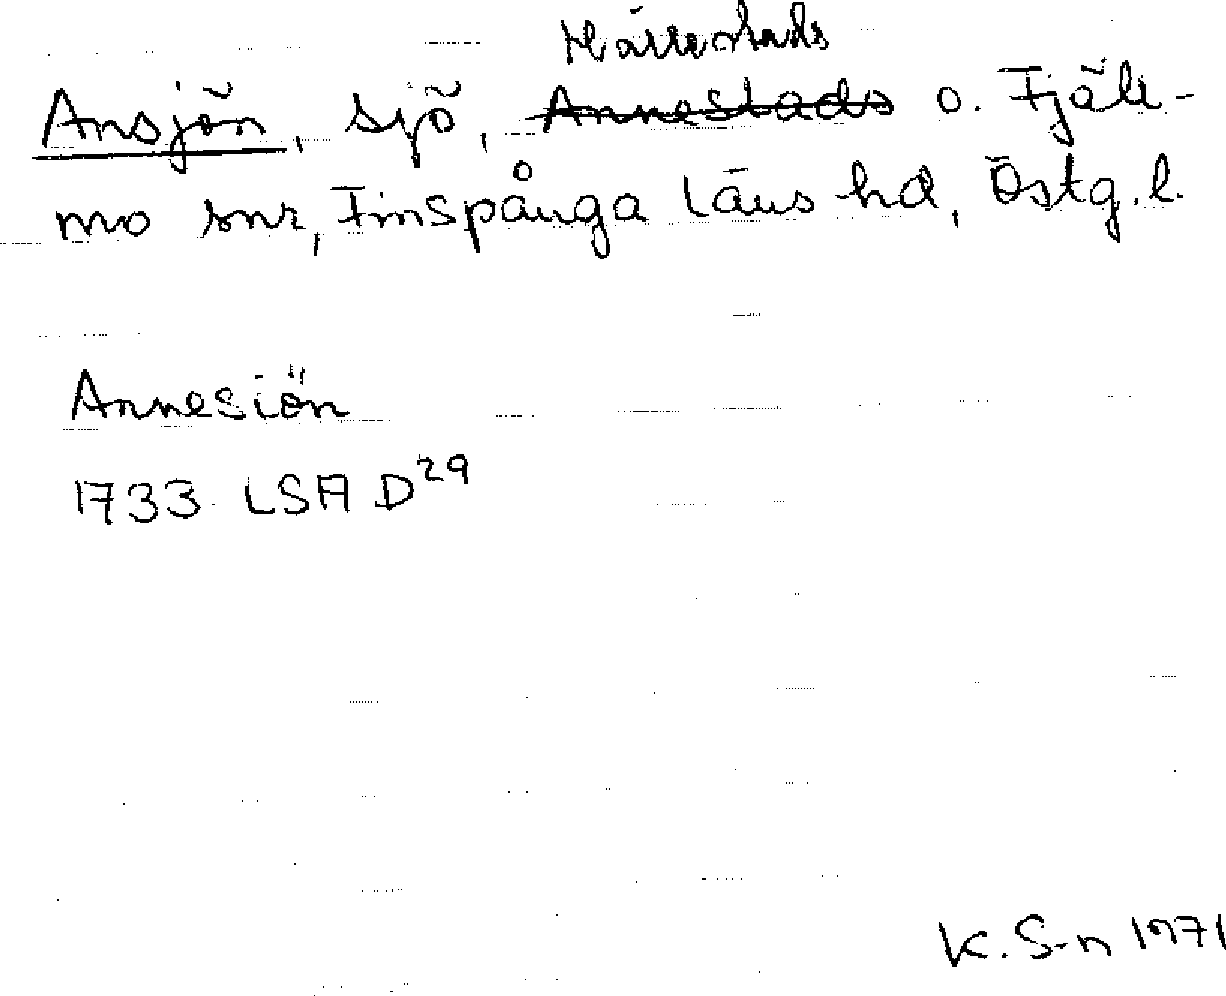 Hällestads
Ansjön, sjö, Annestads o. Fjäll-
mo snr, Finspånga läns hd, Östg. l.
Annesiön
1733 LSA D29
K. S-n 1971